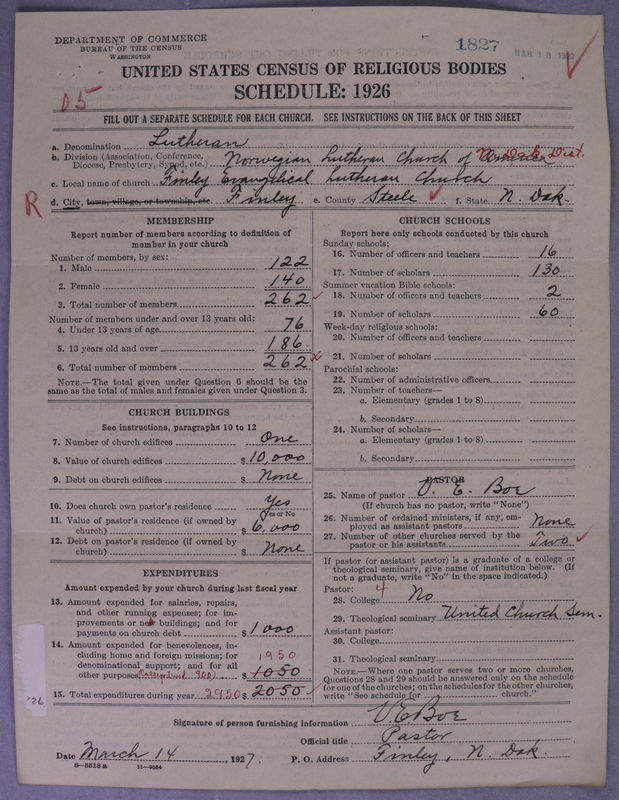 DEPARTMENT OF COMMERCE
BUREAU OF THE CENSUS
WASHINGTON
1827
MAR 18 1927
UNITED STATES CENSUS OF RELIGIOUS BODIES
SCHEDULE: 1926
05
FILL OUT A SEPARATE SCHEDULE FOR EACH CHURCH. SEE INSTRUCTIONS ON THE BACK OF THIS SHEET
a. Denomination Lutheran
b. Division (Association, Conference, Diocese, Presbytery, Synod, etc.) Norwegian Lutheran Church of America N. Dak. Dist.
c. Local name of church Finley Evangelical Lutheran Church
R
d. City, town, village, or township, etc Finley e. County Steele f. State N. Dak.
MEMBERSHIP
Report number of members according to definition of
member in your church
Number of members, by sex:
1. Male 122
2. Female 140
3. Total number of members 262
Number of members under and over 13 years old:
4. Under 13 years of age 76
5. 13 years old and over 186
6. Total number of members 262
NOTE.—The total given under Question 6 should be the
same as the total of males and females given under Question 3.
CHURCH BUILDINGS
See instructions, paragraphs 10 to 12
7. Number of church edifices One
8. Value of church edifices $10,000
9. Debt on church edifices $ None
10. Does church own pastor's residence Yes
Yes or No
11. Value of pastor's residence (if owned by
church) $ 6,000
12. Debt on pastor's residence (if owned by
church) $ None
EXPENDITURES
Amount expended by your church during last fiscal year
13. Amount expended for salaries, repairs,
and other running expenses; for im-
provements or new buildings; and for
payments on church debt $1000
14. Amount expended for benevolences, in-
cluding home and foreign missions; for
denominational support; and for all 1950
other purposes 900) $1050
15. Total expenditures during year 2950 $2050
CHURCH SCHOOLS
Report here only schools conducted by this church
Sunday schools:
16. Number of officers and teachers 16
17. Number of scholars 130
Summer vacation Bible schools:
18. Number of officers and teachers 2
19. Number of scholars 60
Week-day religious schools:
20. Number of officers and teachers
21. Number of scholars
Parochial schools:
22. Number of administrative officers
23. Number of teachers—
a. Elementary (grades 1 to 8)
b. Secondary
24. Number of scholars—
a. Elementary (grades 1 to 8)
b. Secondary
PASTOR
25. Name of pastor O. E. Boe
(If church has no pastor, write "None")
26. Number of ordained ministers, if any, em-
ployed as assistant pastors None
27. Number of other churches served by the
pastor or his assistants Two
If pastor (or assistant pastor) is a graduate of a college or
theological seminary, give name of institution below. (If
not a graduate, write "No" in the space indicated.)
Pastor: 4
28. College No
29. Theological seminary United Church Sem.
Assistant pastor:
30. College
31. Theological seminary
NOTE.—Where one pastor serves two or more churches,
Questions 28 and 29 should be answered only on the schedule
for one of the churches; on the schedules for the other churches,
write "See schedule for church."
'26
Signature of person furnishing information O. E. Boe
Official title Pastor
Date March 14, 1927. P. O. Address Finley, N. Dak.
8—5518 a 11—9034